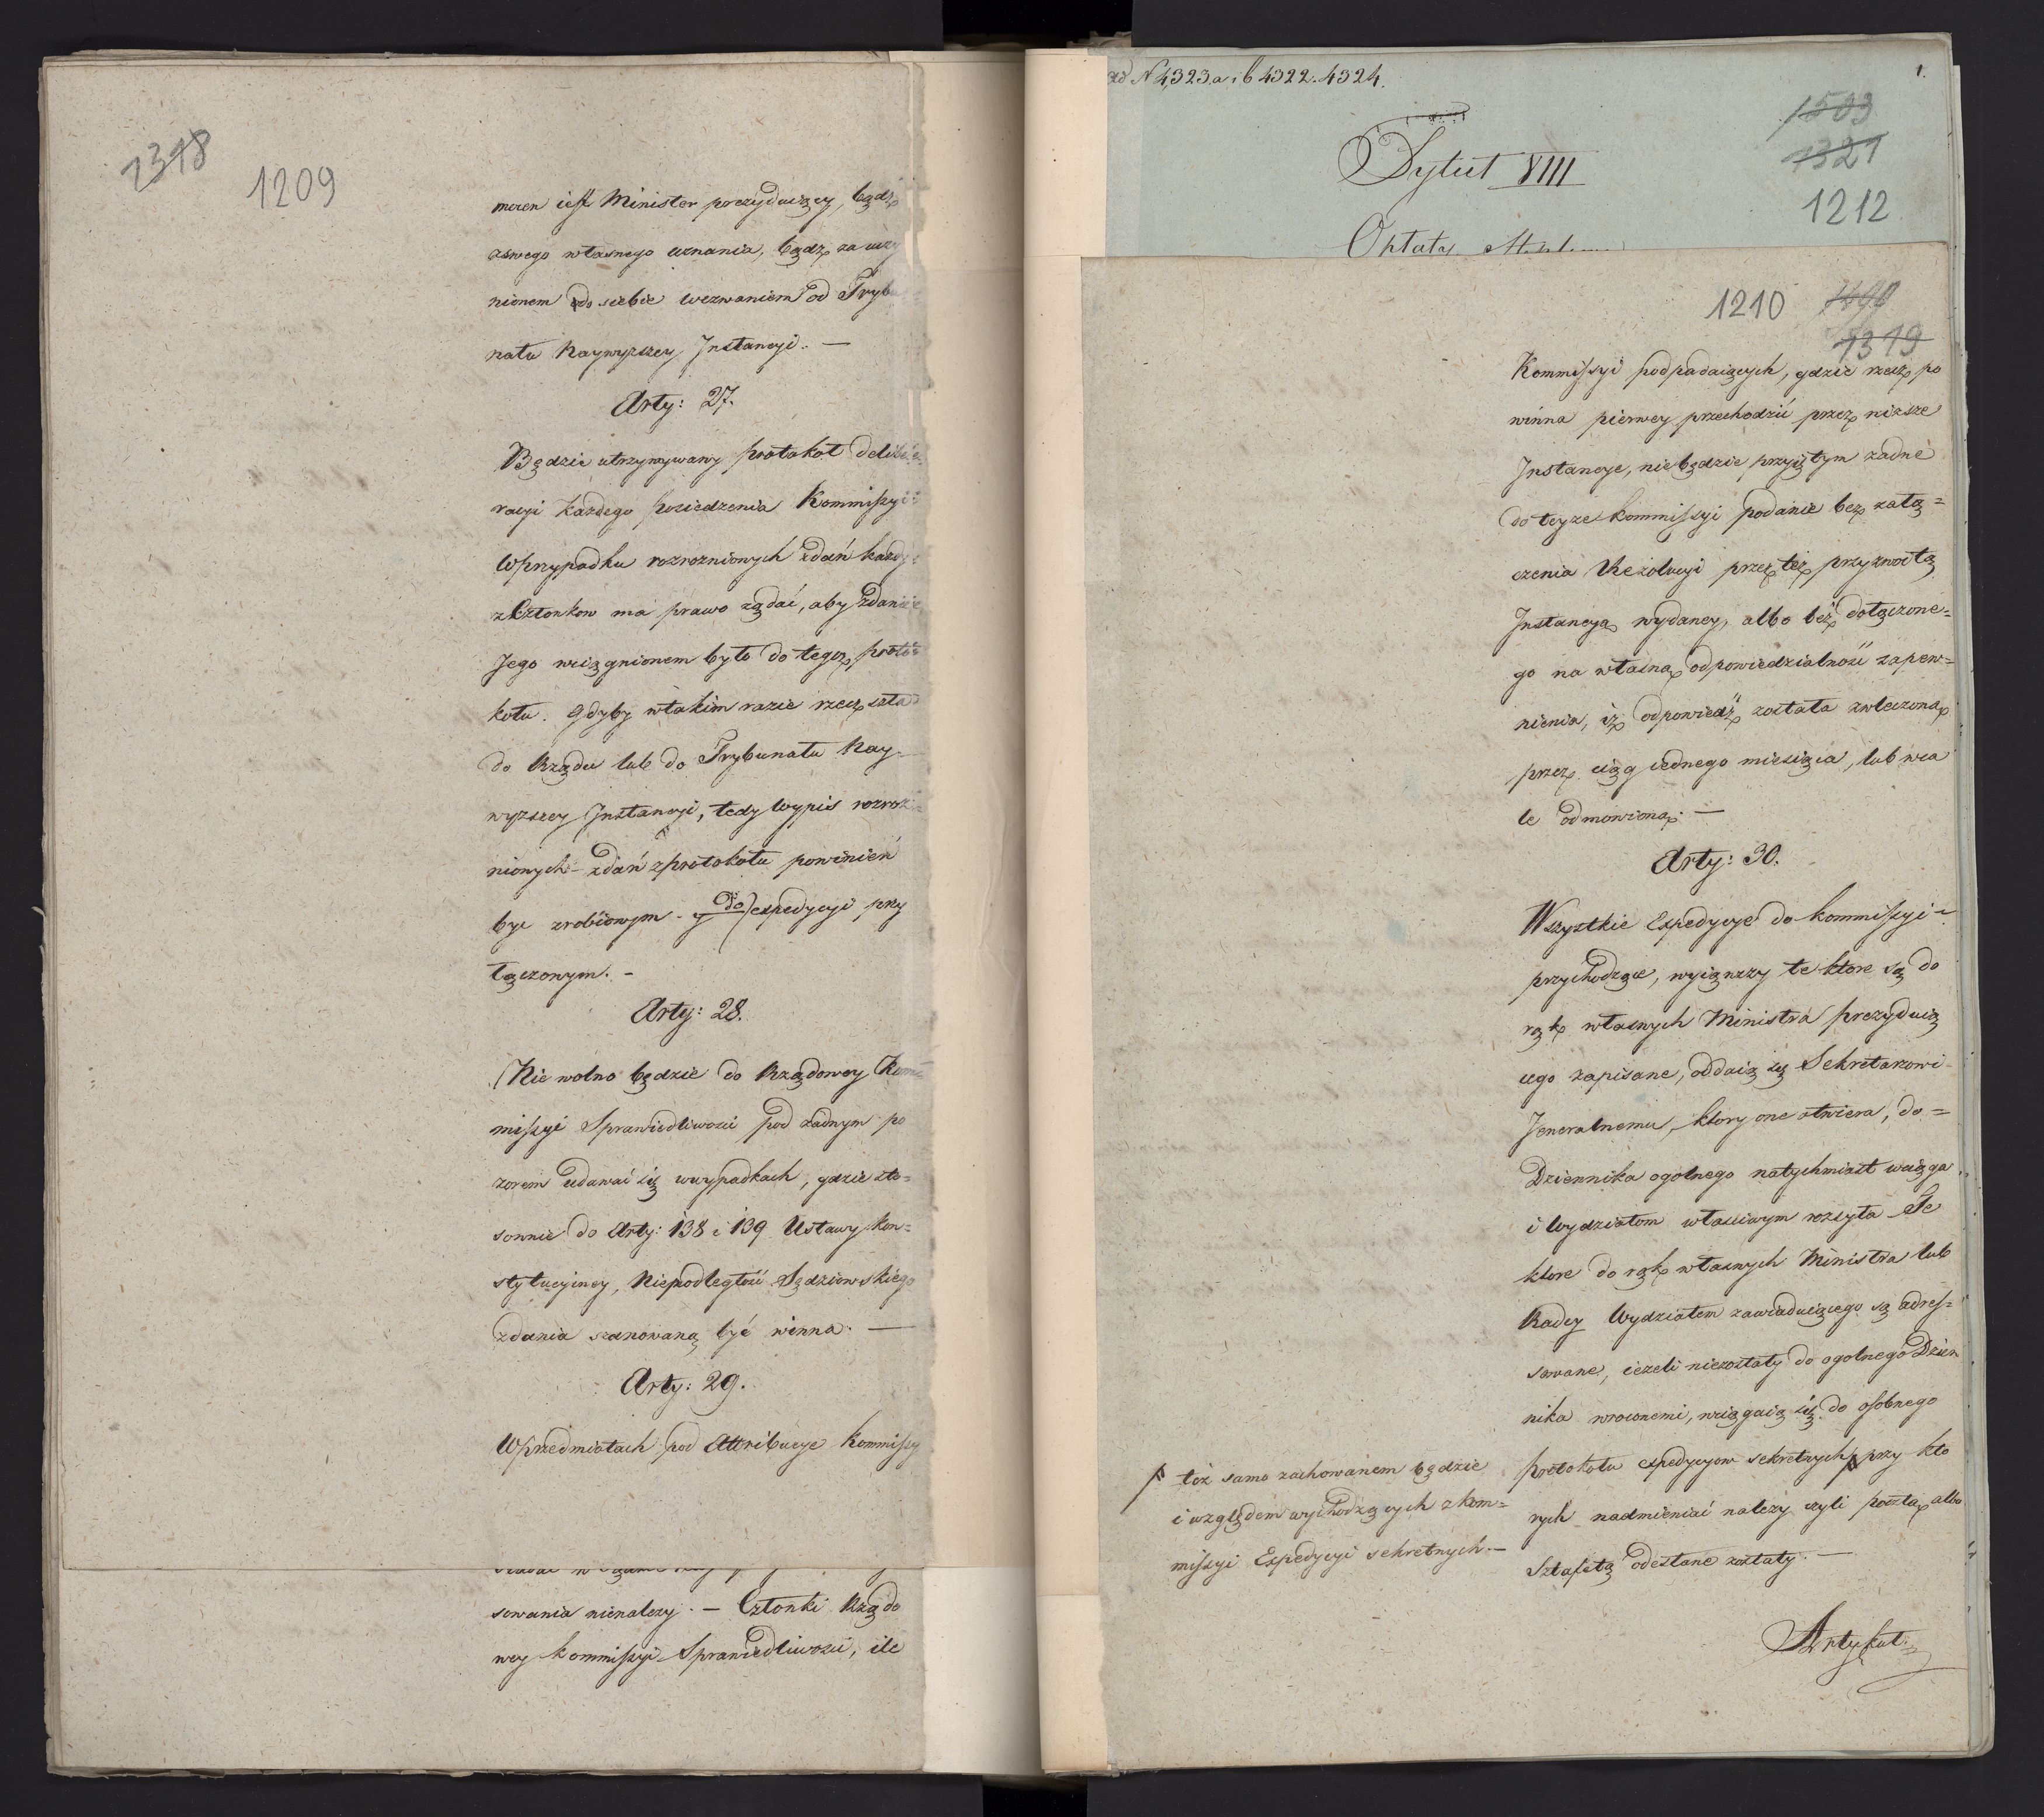 1318
1209
mocen iest Minister prezyduiący, bądź
zswego własnego uznania, bądź za uczy
nionem do siebie wezwaniem od Trybu
nału Naywyższey Instancyi. —
Arty: 27.
Będzie utrzymywany protokół delibe-
racyi każdego posiedzenia Kommissyi:
W przypadku rozrożnionych zdań każdy
z Członkow ma prawo żądać, aby zdanie
Jego wciągnionem było do tegoż proto
kołu. Gdyby w takim razie rzecz szła
do Rządu lub do Trybunału Nay-
wyższey Instancyi, tedy wypis rozroż
nionych zdań z protokołu powinien
byc zrobionym - y do expedycyi przy
łączonym. -
Arty: 28.
Nie wolno będzie do Rządowey Kom
missyi Sprawiedliwości pod żadnym po
zorem udawać się w wypadkach, gdzie sto-
sownie do Arty: 138 i 139 Ustawy kon-
stytucyiney, Niepodległość Sędziowskiego
zdania szanowaną być winna. —
Arty: 29.
W przedmiotach pod Attribucye Kommissy
sowania nienależy. — Członki Rządo
wey Kommissyi Sprawiedliwości, ile
ad N 4,323 a. i b 4322. 4324.
1.
Tytuł VIII
1503
1321
1212
Opłata
1210
1319
Kommissyi podpadaiących, gdzie rzecz po
winna pierwey przechodzić przez niższe
Instancye, niebędzie przyiętym żadne
do teyże Kommissyi podanie bez załą=
czenia Rezolucyi przez też przyzwoitą
Instancyą wydaney, albo bez dołączone=
go na własną odpowiedzialność zapew=
nienia, iż odpowiedź została zwleczoną
przez ciąg iednego miesiąca, lub wca
le odmowioną. —
Arty: 30.
Wszystkie Expedycye do Kommissyi -
przychodzące, wyiąwszy te ktore są do
rąk własnych Ministra prezyduią
cego zapisane, oddaią się Sekretarzowi
Jeneralnemu, ktory one otwiera, do=
Dziennika ogolnego natychmiast wciąga
i Wydziałom właściwym rozsyła Te
ktore do rąk własnych Ministra lub
Radcy Wydziałem zawiaduiącego są adres=
sowane, ieżeli niezostały do ogolnego Dzien
nika wroconemi, wciągaią się do osobnego
protokołu expedycyow sekretnych przy kto
rych nadmieniać należy czyli pocztą albo
Sztafetą odesłane zostały. —
toż samo zachowanem będzie
i względem wychodzących z kom=
missyi Expedycyi sekretnych. —
Artykuł: